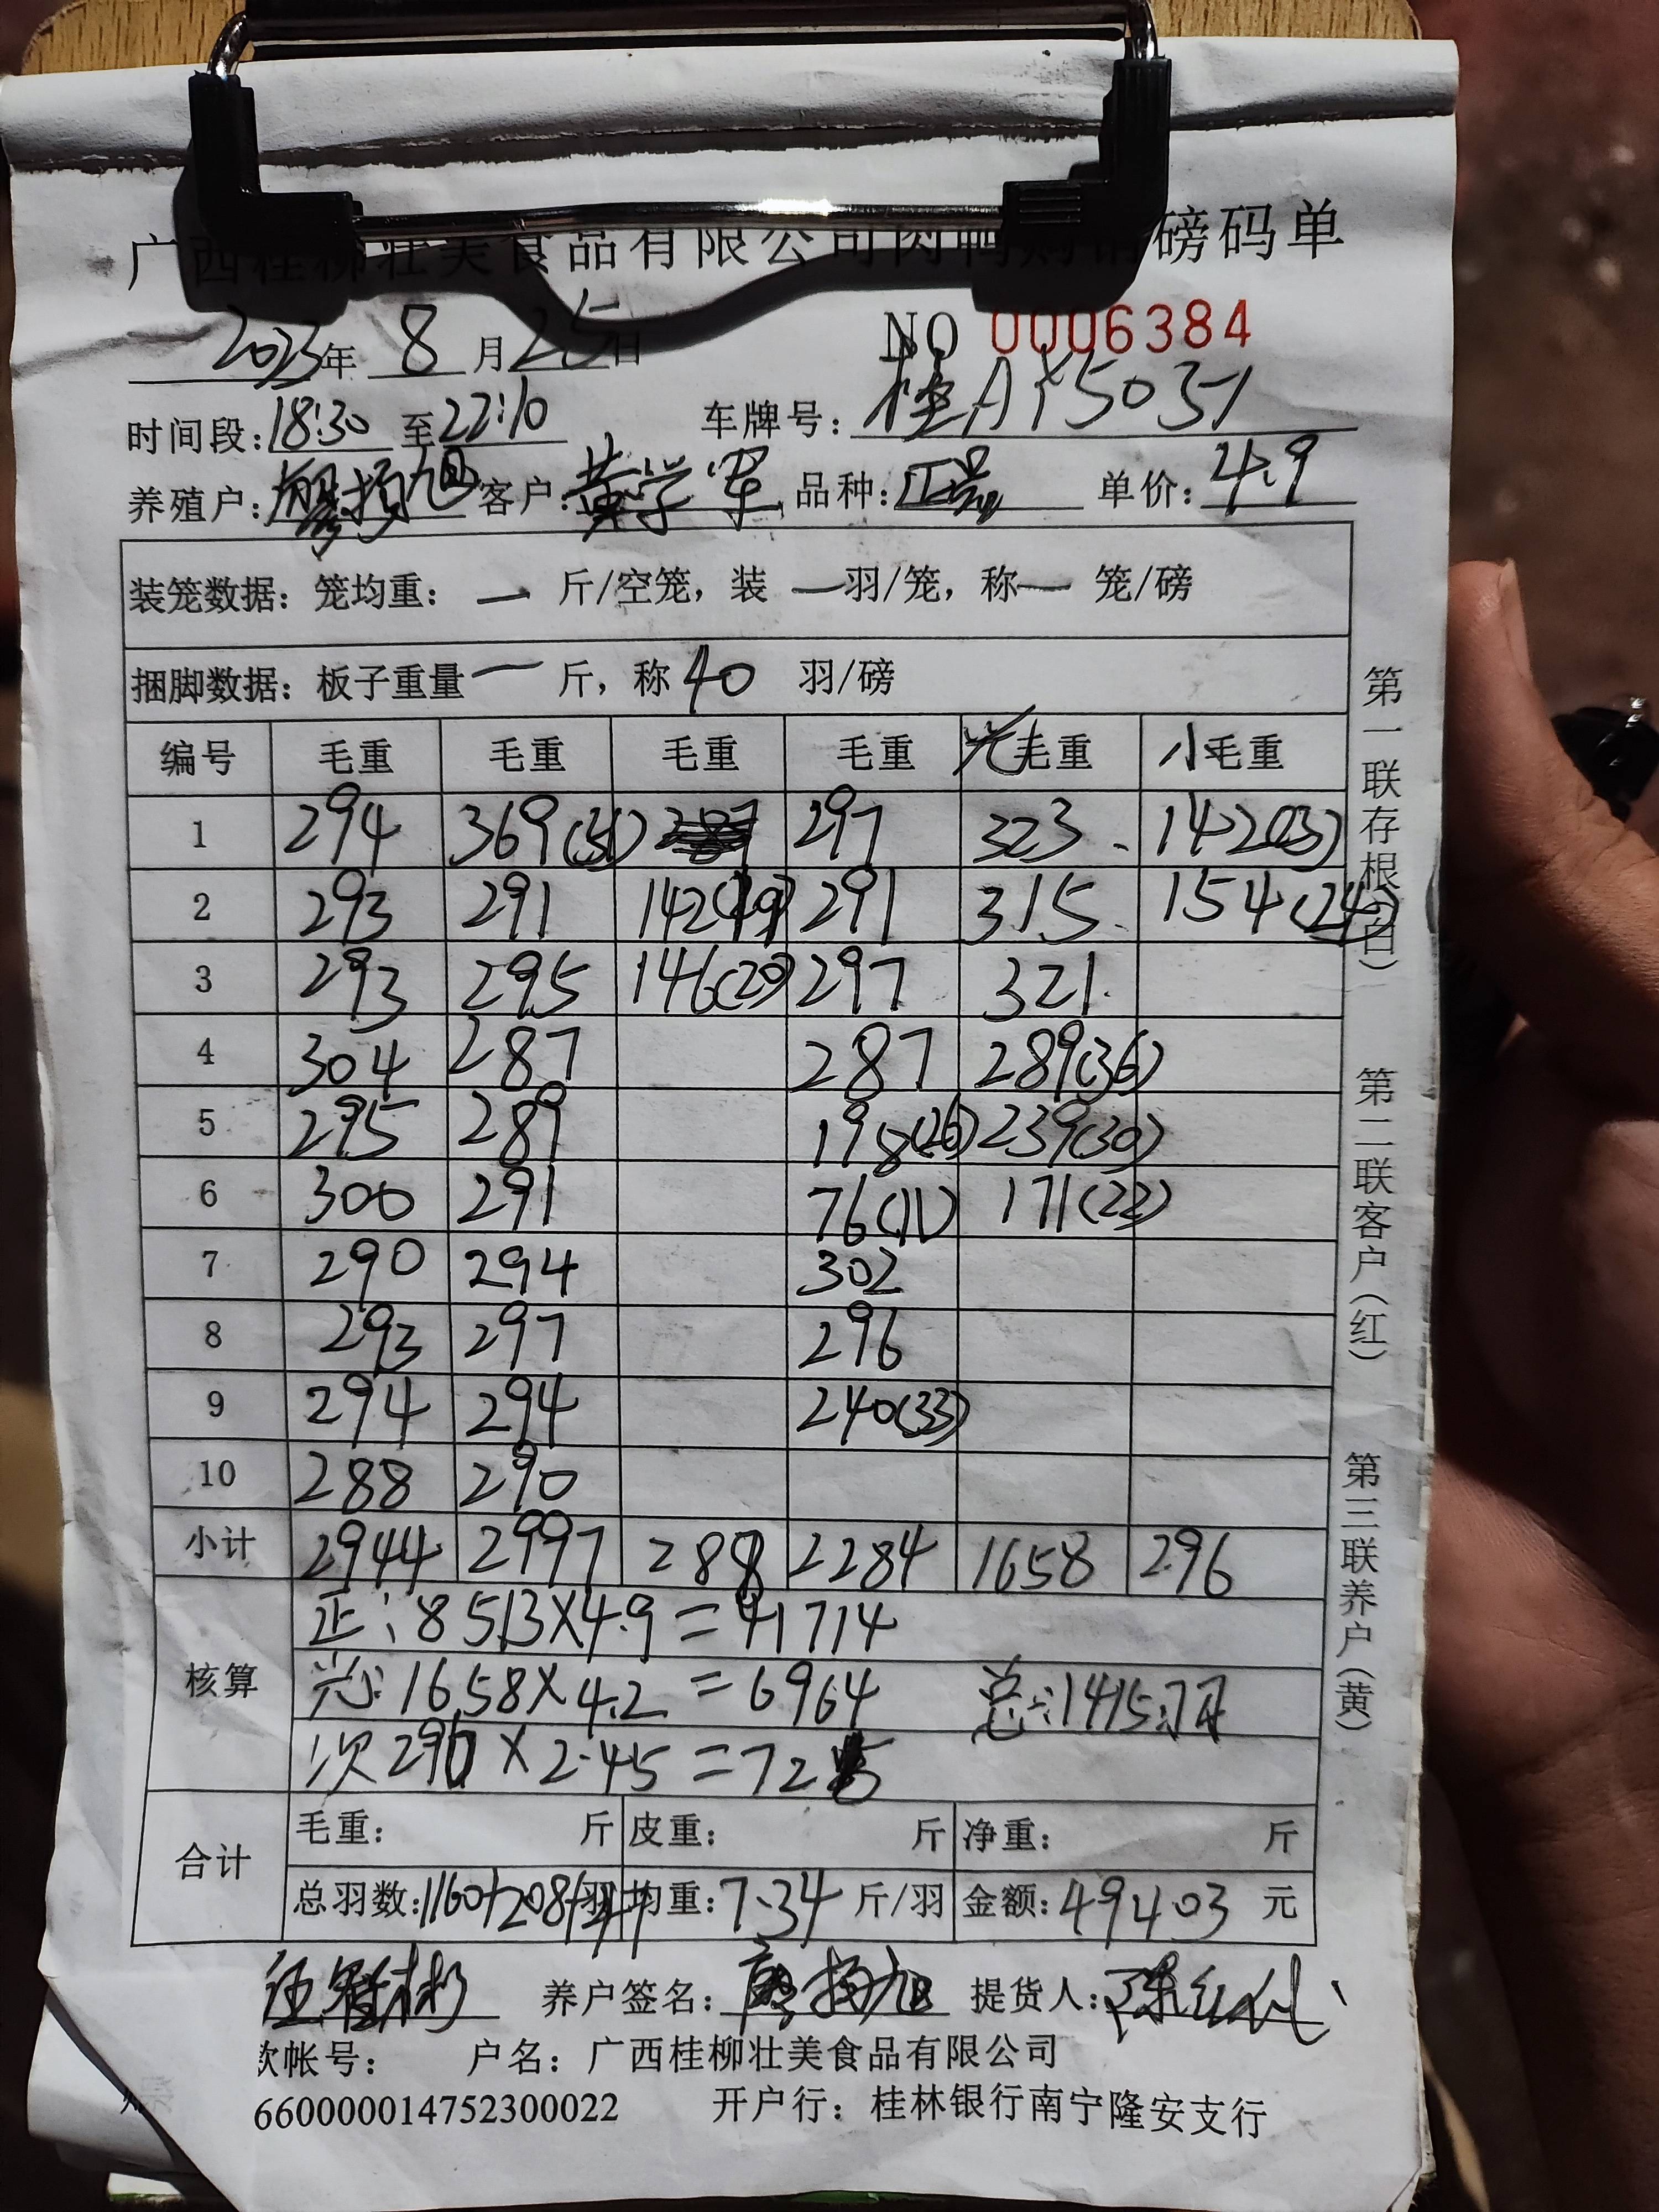 广西桂柳壮美食品有限公司肉鸭购销磅码单
2023年 8 月 25 日 NO 0006384
时间段:18:30 至 22:10 车牌号: 桂AY5031
养殖户: 客户: 黄学军 品种: 单价: 4.9
装笼数据: 笼均重: 一 斤/空笼, 装 一 羽/笼, 称 一 笼/磅
捆脚数据: 板子重量 一 斤, 称 40 羽/磅
编号 毛重 毛重 毛重 毛重 光毛重 小毛重
1 294 369(51) 297 323 142(23)
2 293 291 142(19) 291 315 154(24)
3 293 295 146(20) 297 321
4 304 287 287 289(36)
5 295 289 198(26) 239(30)
6 300 291 76(11) 171(22)
7 290 294 302
8 293 297 296
9 294 294 240(33)
10 288 290
小计 2944 2997 288 2284 1658 296
核算
正: 8513×4.9=41714
光: 1658×4.2=6964 总:1415羽
次 296×2.45=725
合计
毛重: 斤 皮重: 斤 净重: 斤
总羽数:1160+208+47羽 均重:7.34 斤/羽 金额:49403 元
养户签名: 提货人:
款帐号: 户名: 广西桂柳壮美食品有限公司
660000014752300022 开户行: 桂林银行南宁隆安支行
第一联存根(白)
第二联客户(红)
第三联养户(黄)